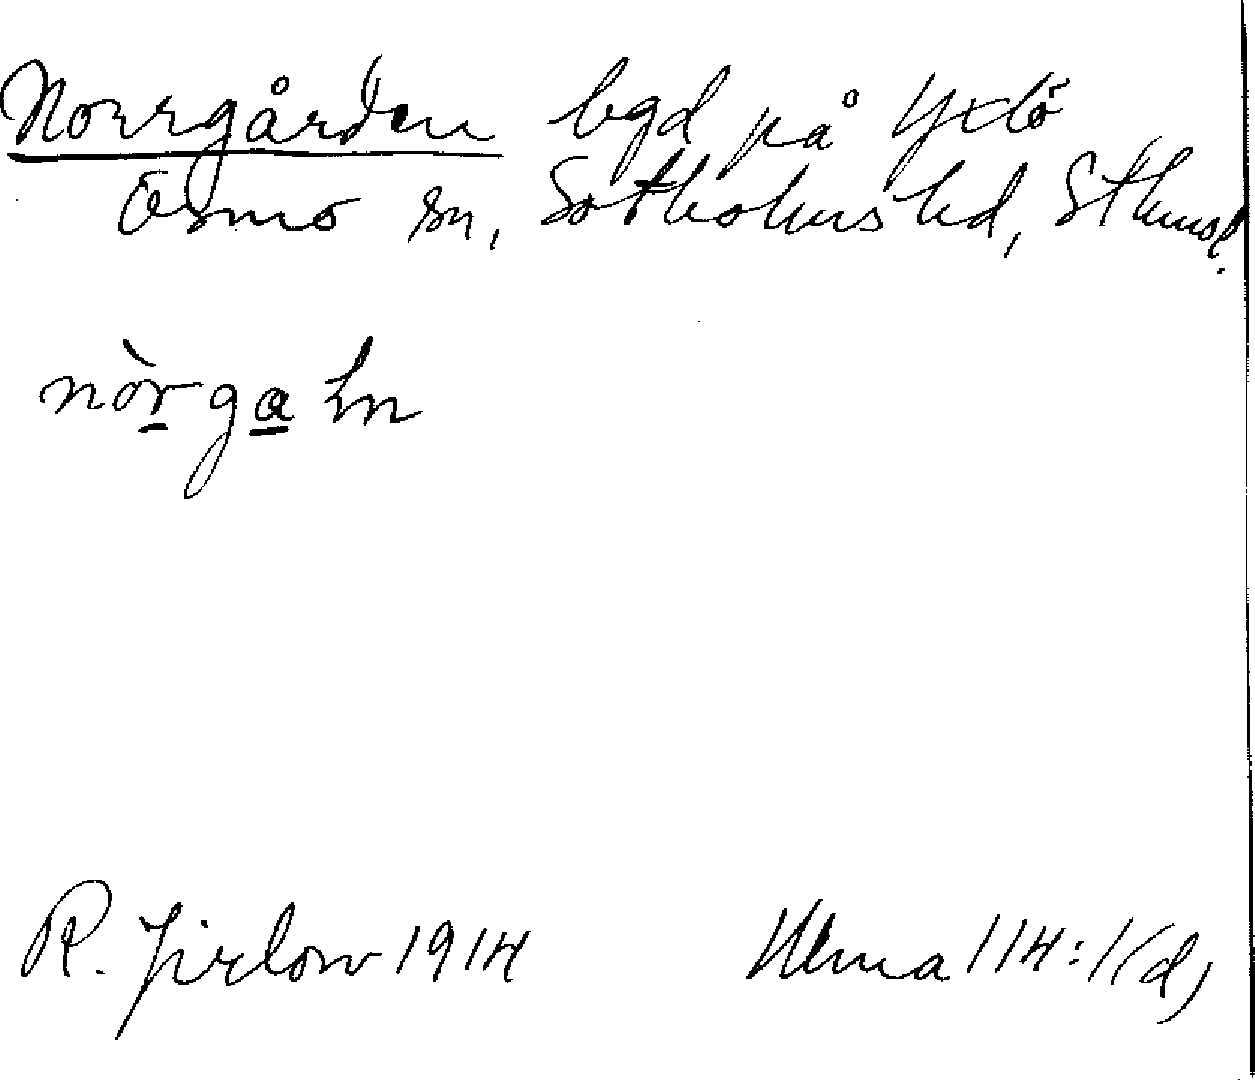 Norrgården bgd på Yxlö
Ösmo sn, Sotholms hd, Sthms l.
nòrgaɫn
R. Jirlow 1914
Ulma 114:1(d)